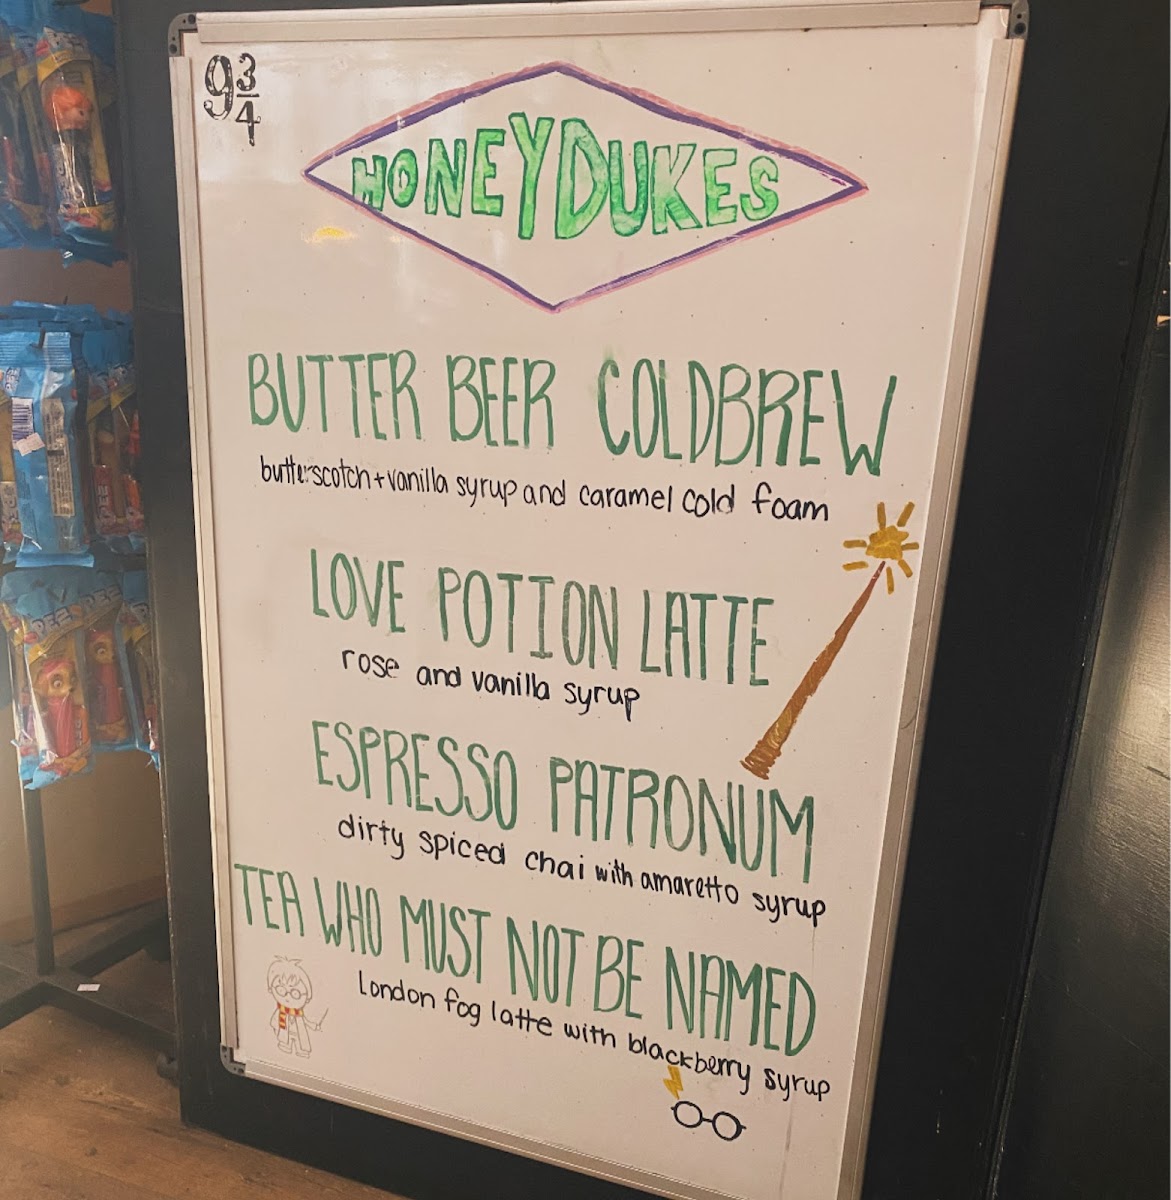 9 3/4
HONEYDUKES
BUTTER BEER COLDBREW
butterscotch+vanilla syrup and caramel cold foam
LOVE POTION LATTE
rose and vanilla syrup
ESPRESSO PATRONUM
dirty spiced chai with amaretto syrup
TEA WHO MUST NOT BE NAMED
London fog latte with blackberry syrup
PEZ
PEZ